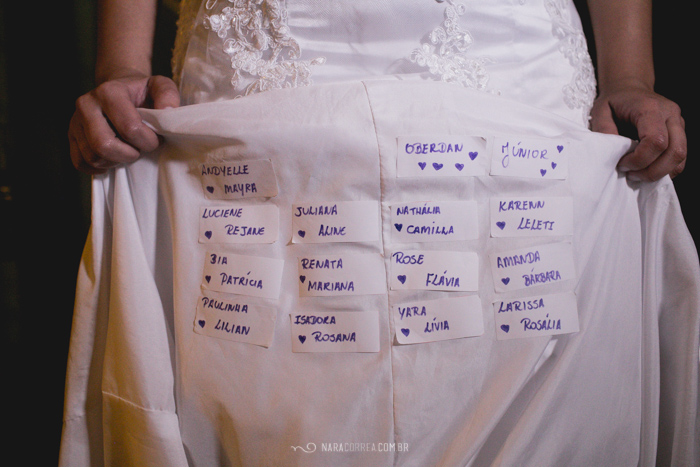 ANDYELLE
♥ MAYRA
OBERDAN
♥ ♥ ♥ ♥
JÚNIOR ♥
♥ ♥
LUCIENE
♥ REJANE
JULIANA
♥ ALINE
NATHÁLIA
♥ CAMILLA
KARENN
♥ LELETI
BIA
♥ PATRÍCIA
RENATA
♥ MARIANA
ROSE
♥ FLÁVIA
AMANDA
♥ BÁRBARA
PAULINHA
♥ LILIAN
ISADORA
♥ ROSANA
YARA
♥ LÍVIA
LARISSA
♥ ROSÁLIA
NARACORREA.COM.BR